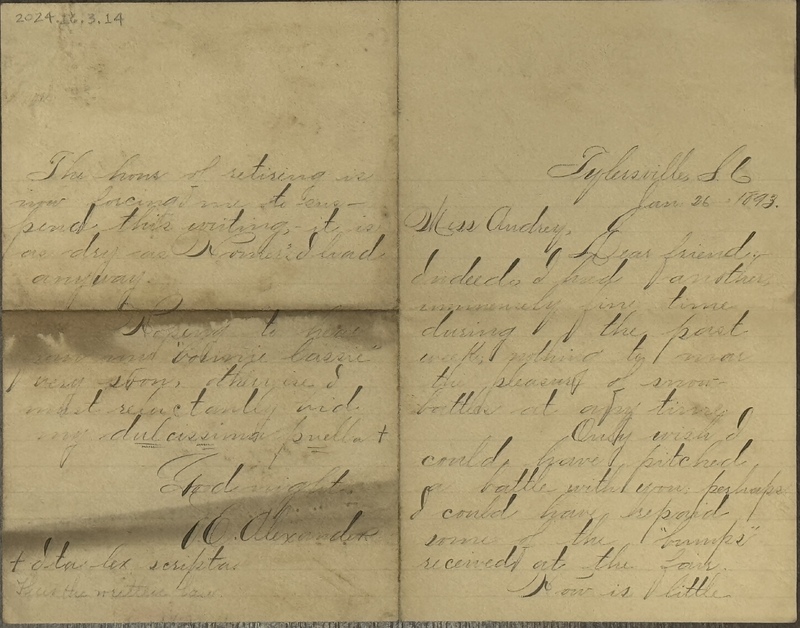 2024.16.3.14
The hour of retiring is
now forcing me to sus-
pend this writing - it is
as dry as I had
anyway.
Hoping to hear
from my "bonnie lassie"
very soon, otherwise I
must reluctantly bid
my dulcissima puella +
Good night.
C. Alexander
+ Ita lex scripta
Thus the written law.
Tylersville, S. C
Jan 26 - 1893.
Miss Audrey,
Dear friend,
Indeed, I had another,
immensely fine time
during the past
week, nothing to mar
the pleasure of snow
battles at any time.
Only wish I
could have pitched
a battle with you. perhaps
I could have repaid
some of the "bumps"
received at the
How is little